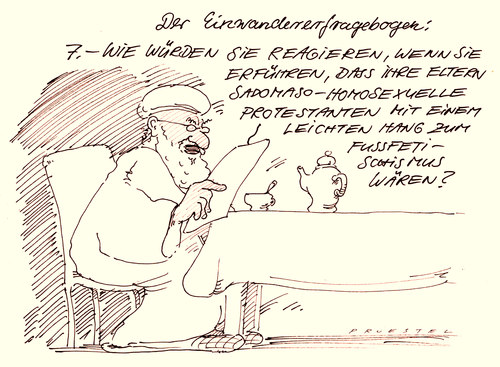 Der Einwandererfragebogen:
7.- WIE WÜRDEN SIE REAGIEREN, WENN SIE
ERFÜHREN, DASS IHRE ELTERN
SADOMASO-HOMOSEXUELLE
PROTESTANTEN MIT EINEM
LEICHTEN HANG ZUM
FUSSFETI-
SCHISMUS
WÄREN?
PRUESTEL